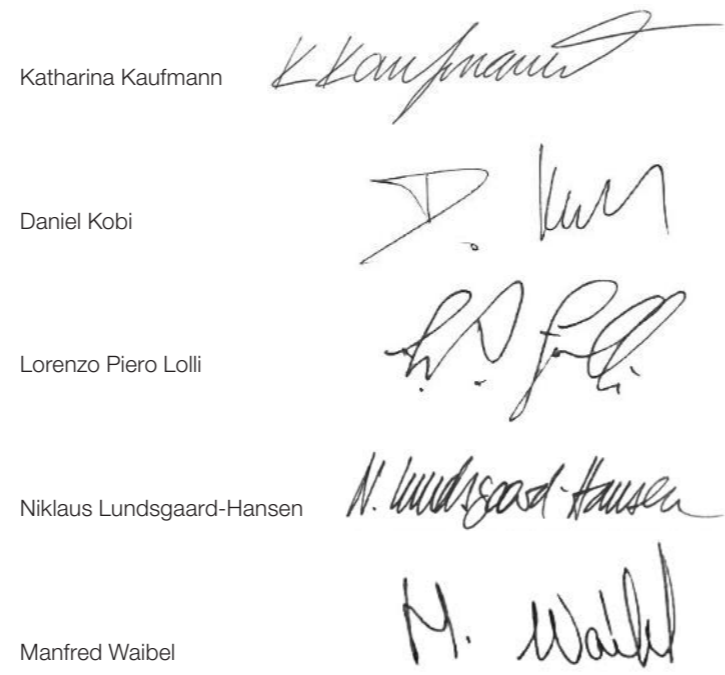 Katharina Kaufmann K Kaufmann
Daniel Kobi D. K
Lorenzo Piero Lolli L. P. Lolli
Niklaus Lundsgaard-Hansen N. Lundsgaard-Hansen
Manfred Waibel M. Waibel